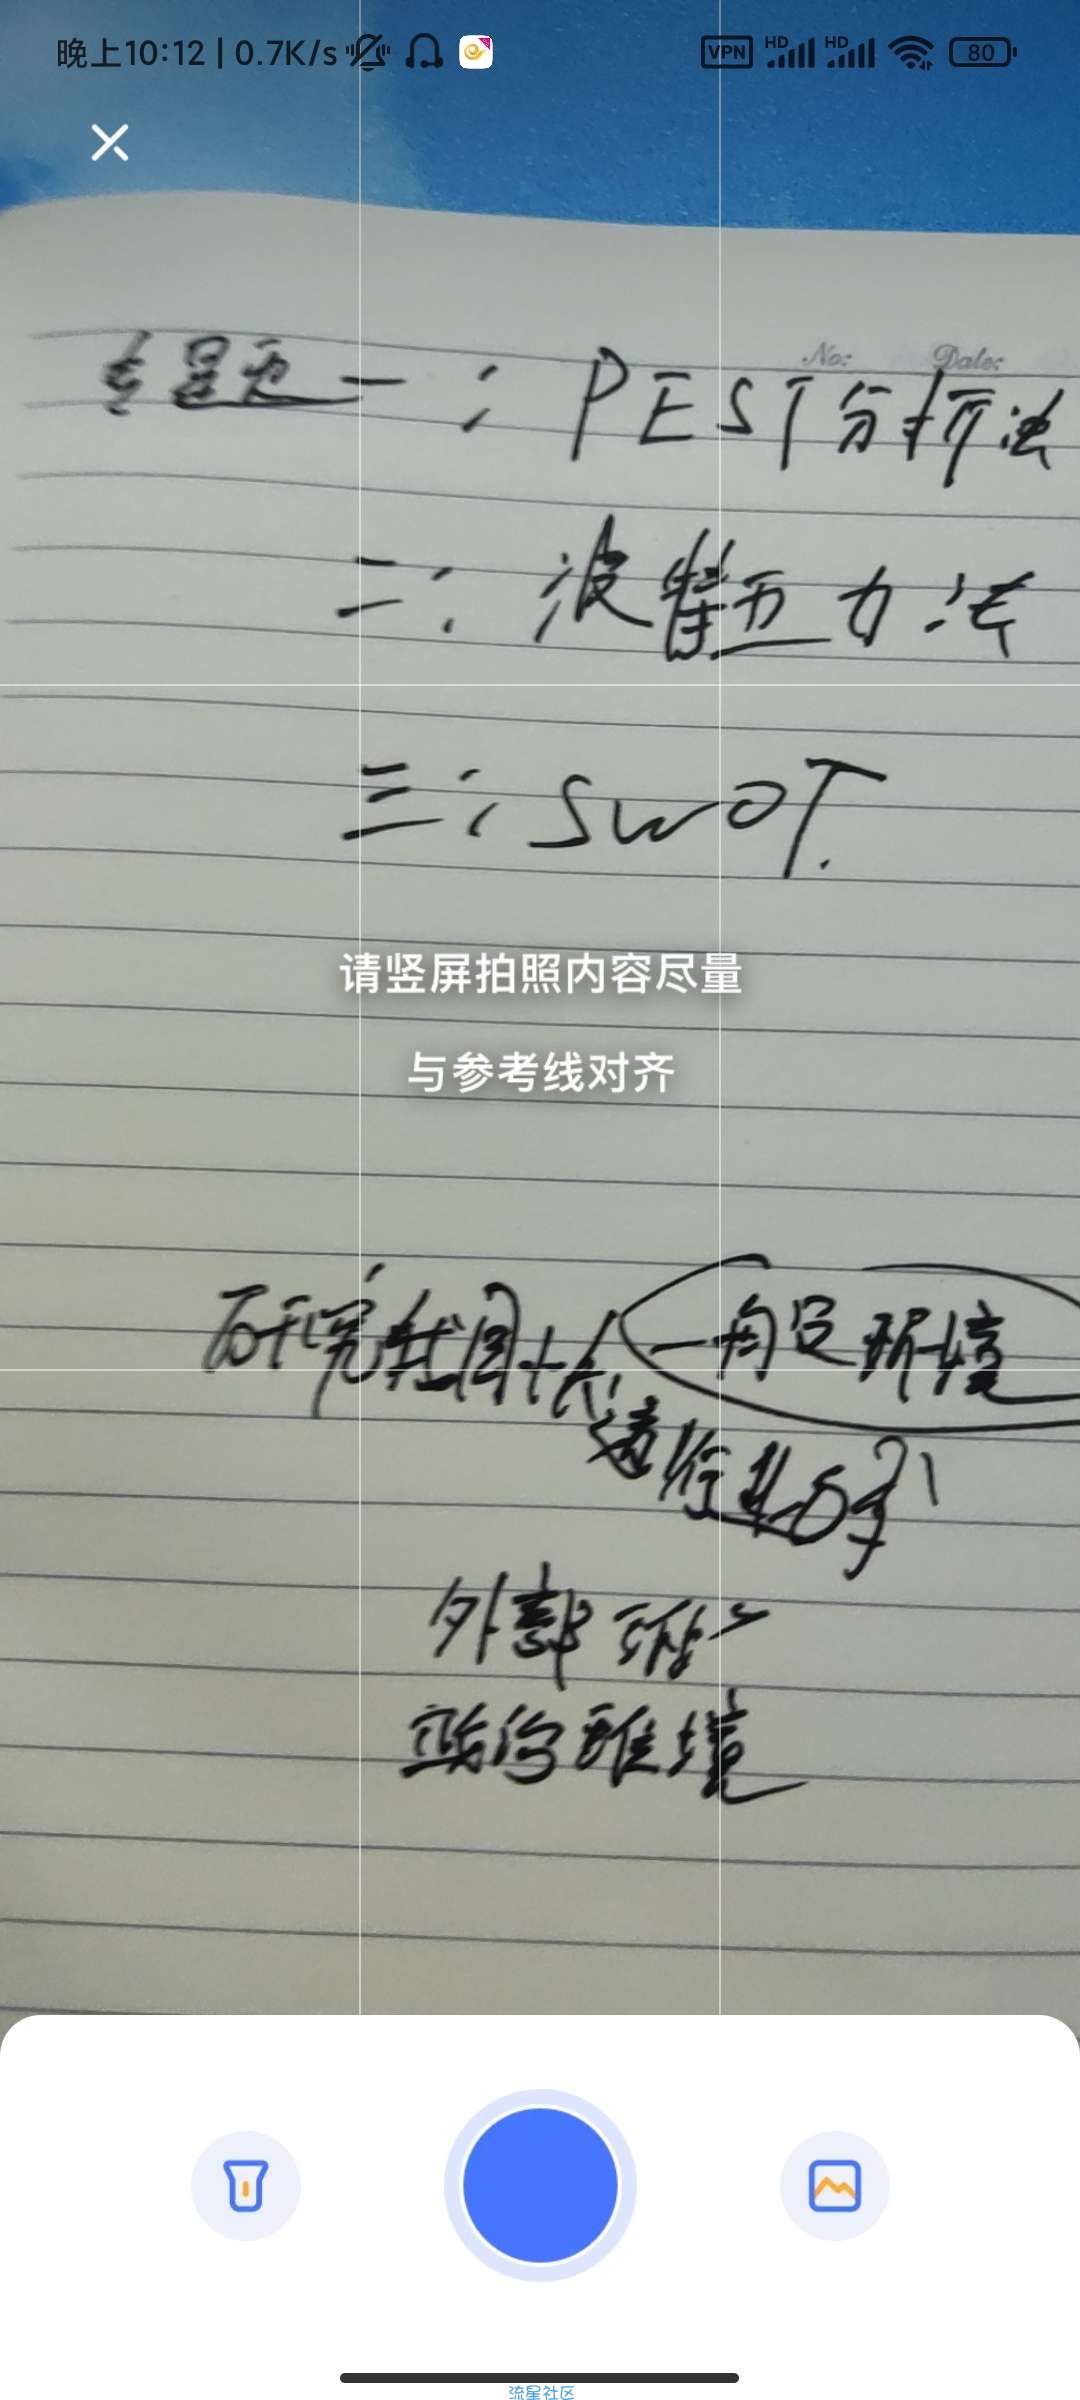 晚上10:12 | 0.7K/s
VPN HD HD 80
No: Date:
专题一：PEST分析法
二：波特五力法
三：SWOT.
请竖屏拍照内容尽量
与参考线对齐
研究我国
环境
外部环
政治环境
流星社区